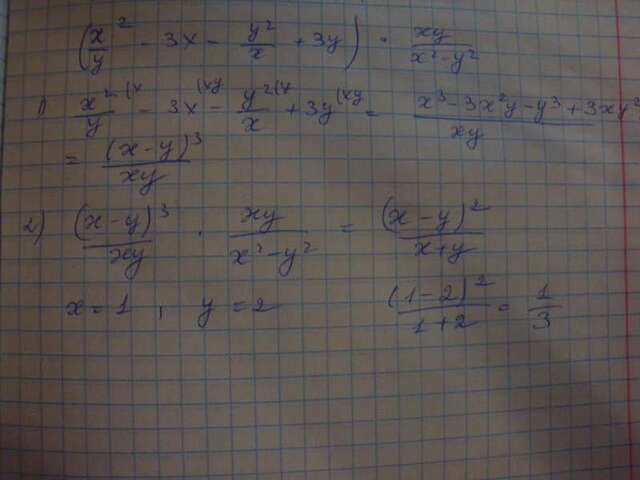 (x²/y - 3x - y²/x + 3y) · xy/(x²-y²)
1) x²(x/y - 3x(xy - y²(x/x + 3y(xy = (x³-3x²y-y³+3xy²)/xy
= (x-y)³/xy
2) (x-y)³/xy · xy/(x²-y²) = (x-y)²/(x+y)
x=1, y=2 (1-2)²/(1+2) = 1/3